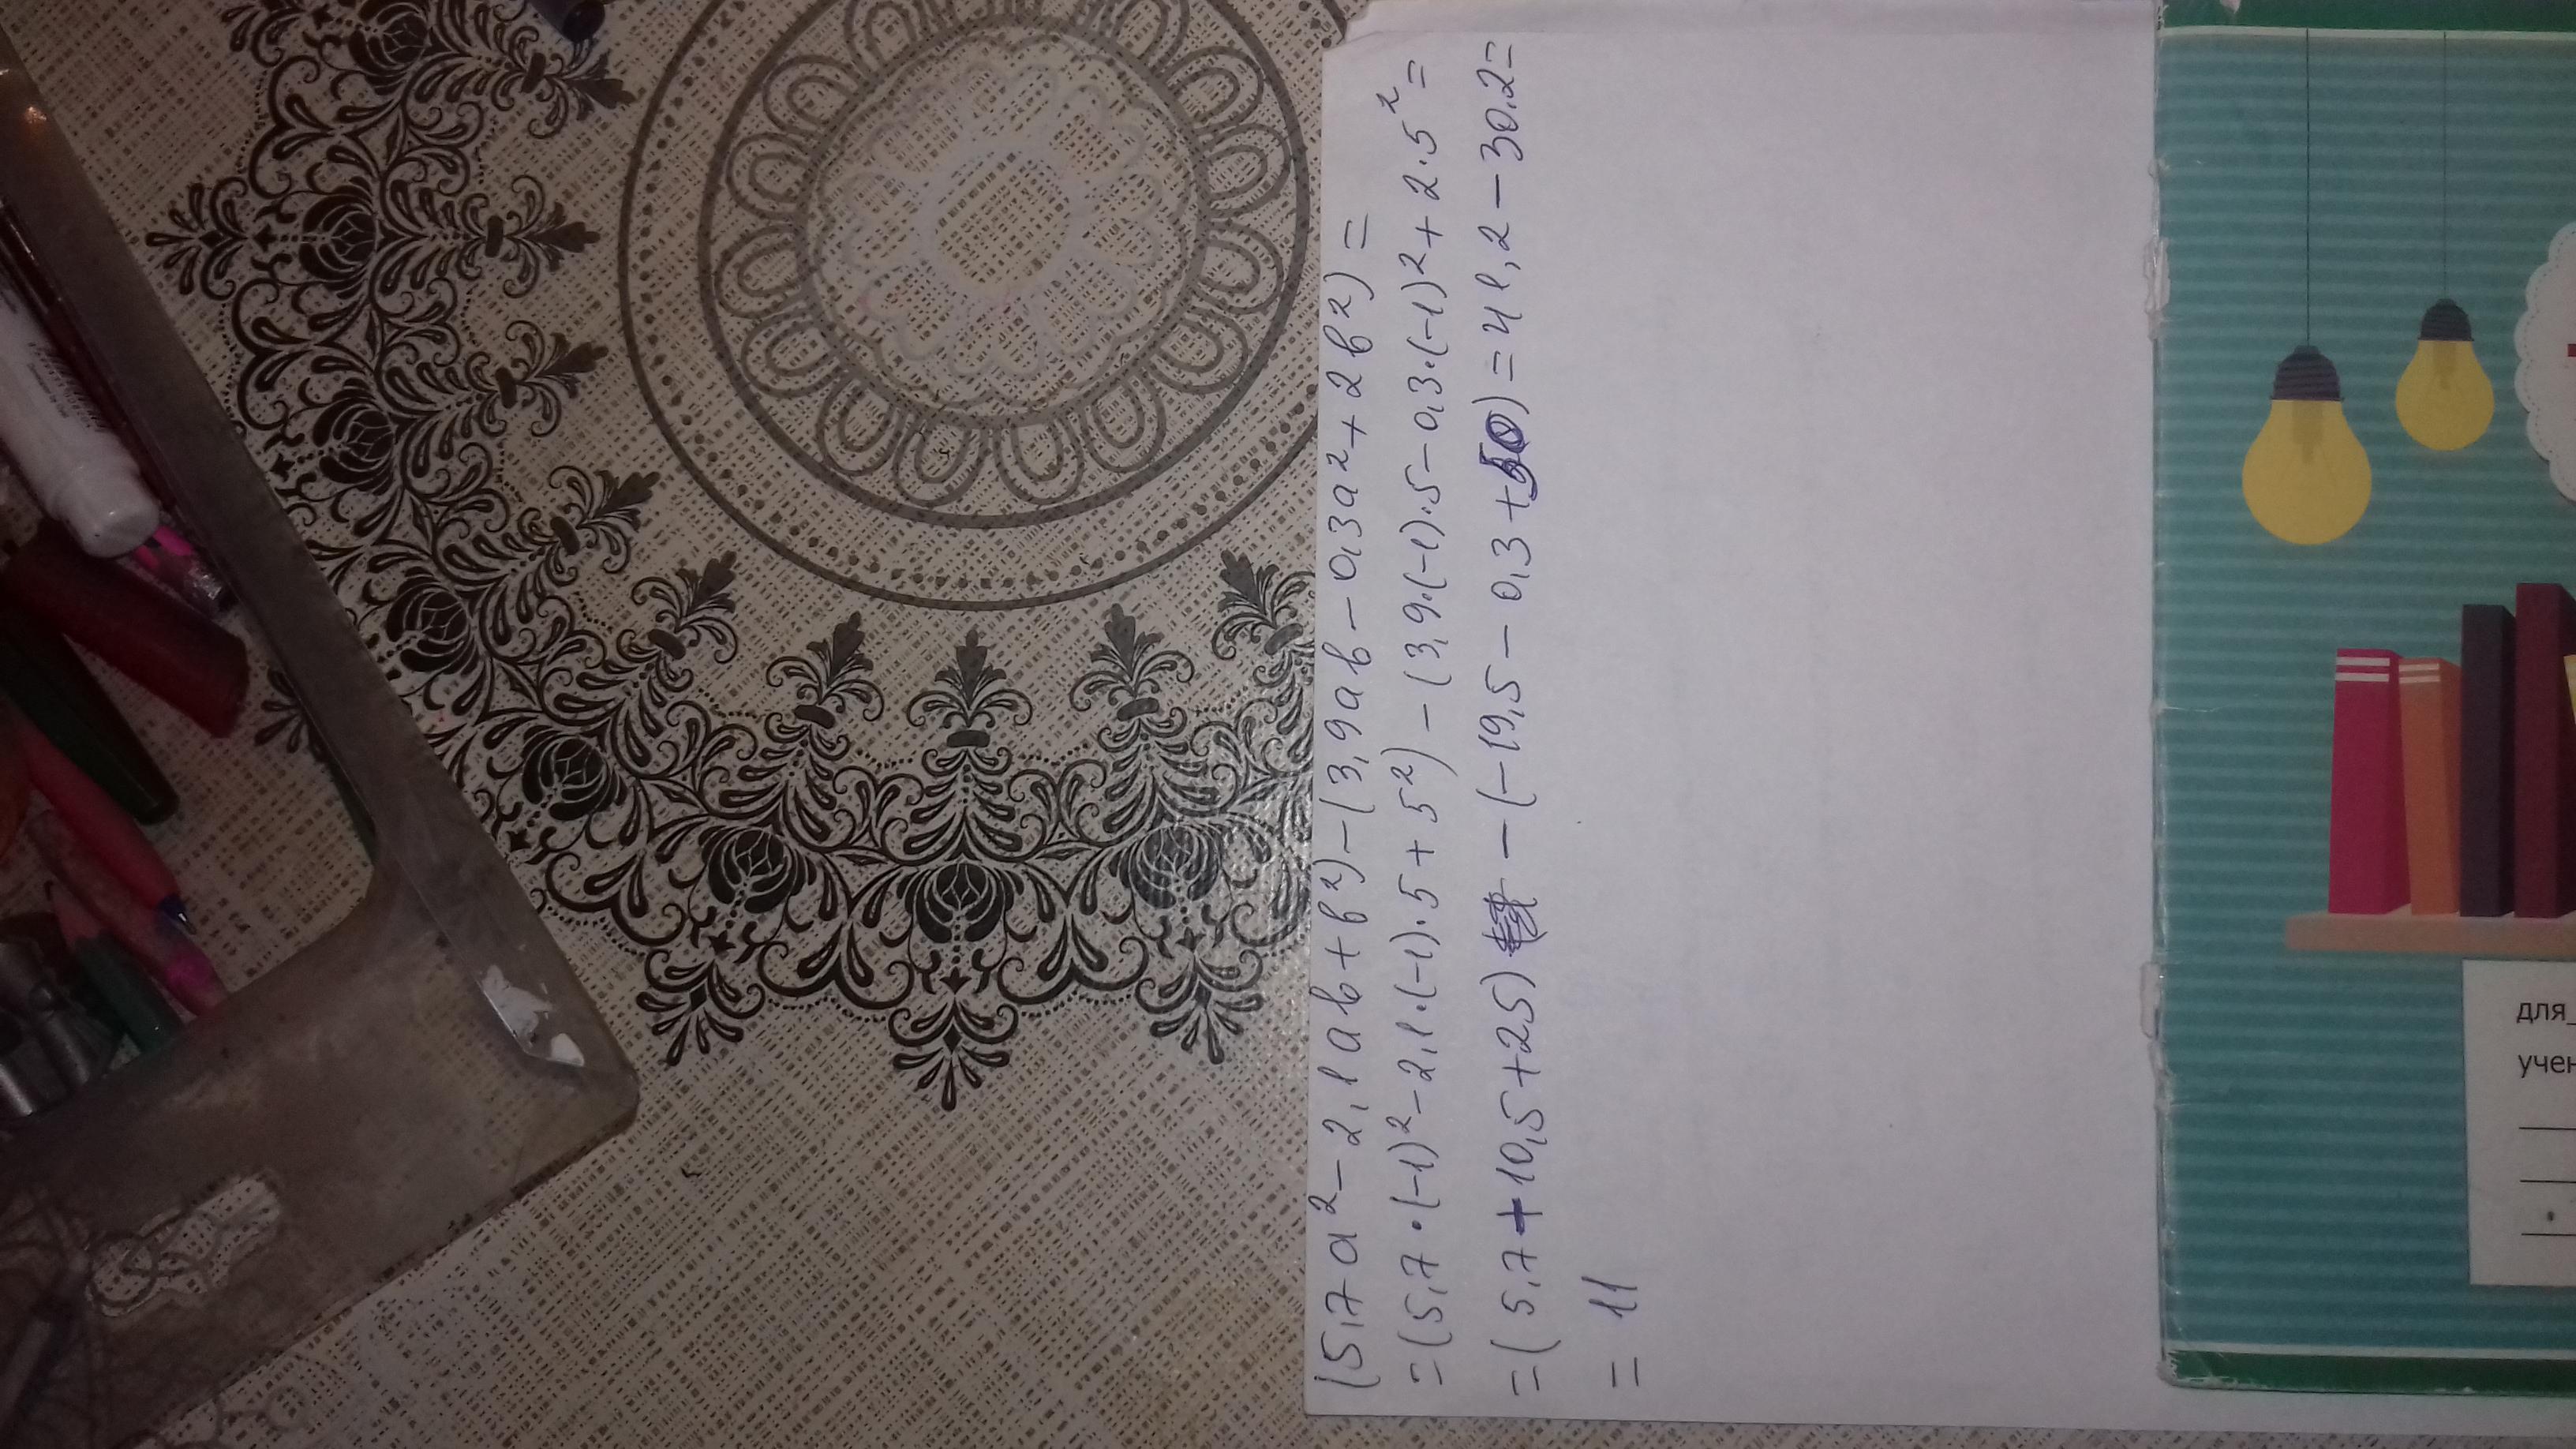 (5,7a² - 2,1ab + b²) - (3,9ab - 0,3a² + 2b²) =
= (5,7 · (-1)² - 2,1 · (-1) · 5 + 5²) - (3,9 · (-1) · 5 - 0,3 · (-1)² + 2 · 5² =
= (5,7 + 10,5 + 25) - (-19,5 - 0,3 + 50) = 41,2 - 30,2 =
= 11
для
учен